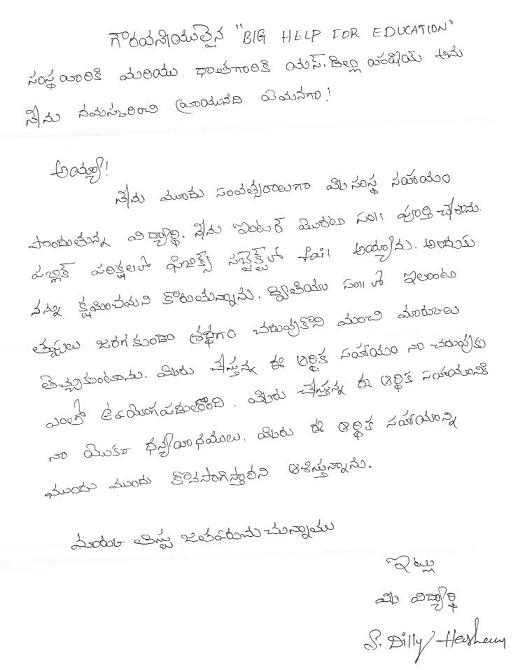 గౌరవనీయులైన "BIG HELP FOR EDUCATION"
సంస్థ వారికి మరియు దాతగారికి యస్. ఢిల్లీ అను
నేను నమస్కరించి వ్రాయునది ఏమనగా!
అయ్యా!
నేను మూడు సంవత్సరాలుగా మీ సంస్థ సహాయం
పొందుతున్న విద్యార్థి. నేను ఇంటర్ మొదటి సం॥ పూర్తి చేశాను.
పబ్లిక్ పరిక్షలలో ఫిజిక్స్ సబ్జెక్ట్‌లో ఫేయిల్ అయ్యాను. అందుకు
నన్ను క్షమించమని కోరుతున్నాను. ద్వితీయ సం॥లో ఇలాంటి
తప్పులు జరగకుండా శ్రద్ధగా చదువుకొని మంచి మార్కులు
తెచ్చుకుంటాను. మీరు చేస్తున్న ఈ ఆర్థిక సహాయం నా చదువుకు
ఎంతో ఉపయోగపడుతోంది. మీరు చేస్తున్న ఈ ఆర్థిక సహాయానికి
నా యొక్క ధన్యవాదములు. మీరు ఈ ఆర్థిక సహాయాన్ని
ముందు ముందు కొనసాగిస్తారని ఆశిస్తున్నాను.
ఇట్లు
మీ విద్యార్థి
S. Dilly